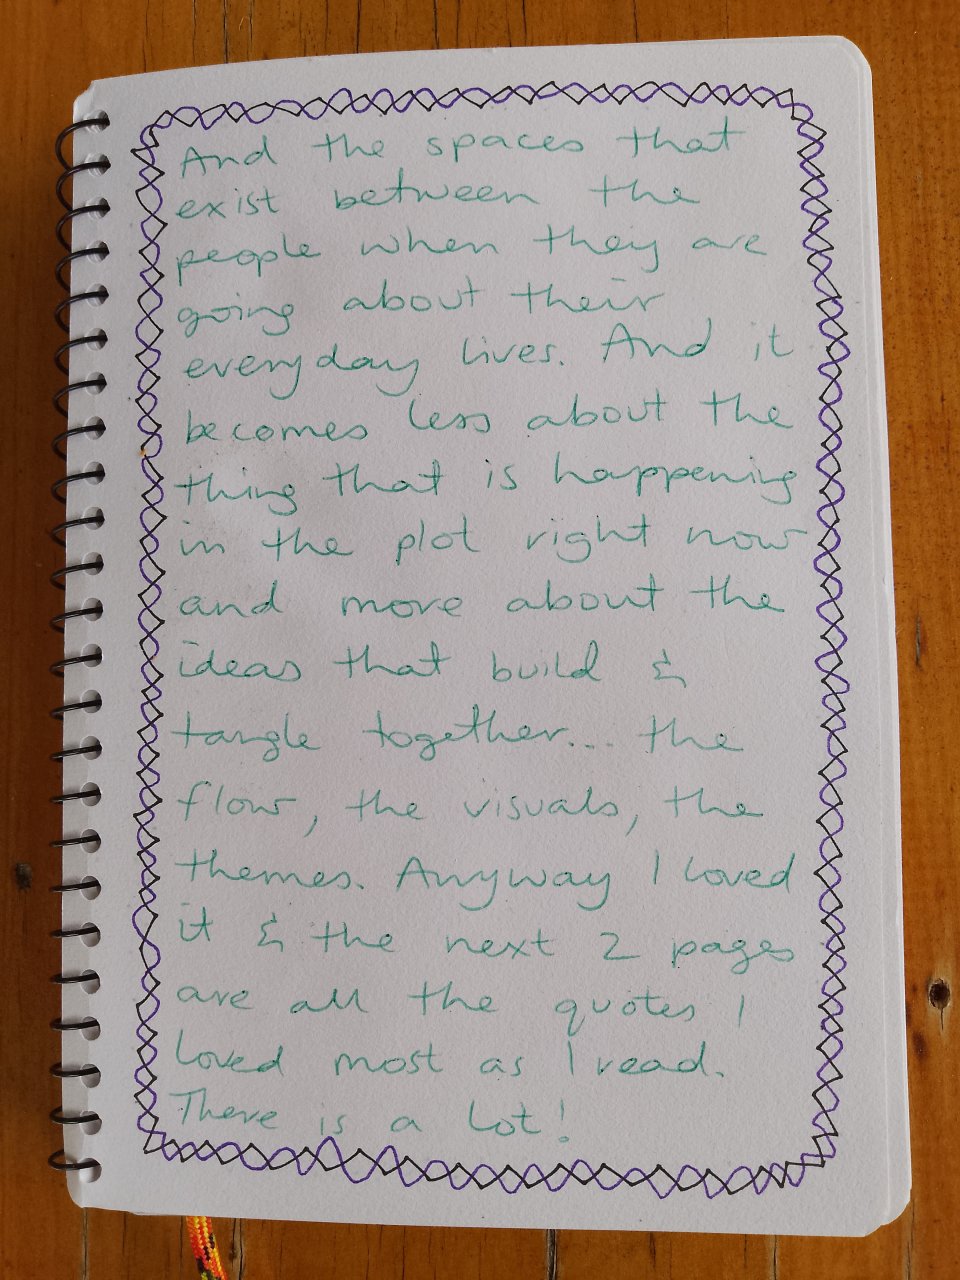 And the spaces that
exist between the
people when they are
going about their
everyday lives. And it
becomes less about the
thing that is happening
in the plot right now
and more about the
ideas that build &
tangle together... the
flow, the visuals, the
themes. Anyway I loved
it & the next 2 pages
are all the quotes I
loved most as I read.
There is a lot!